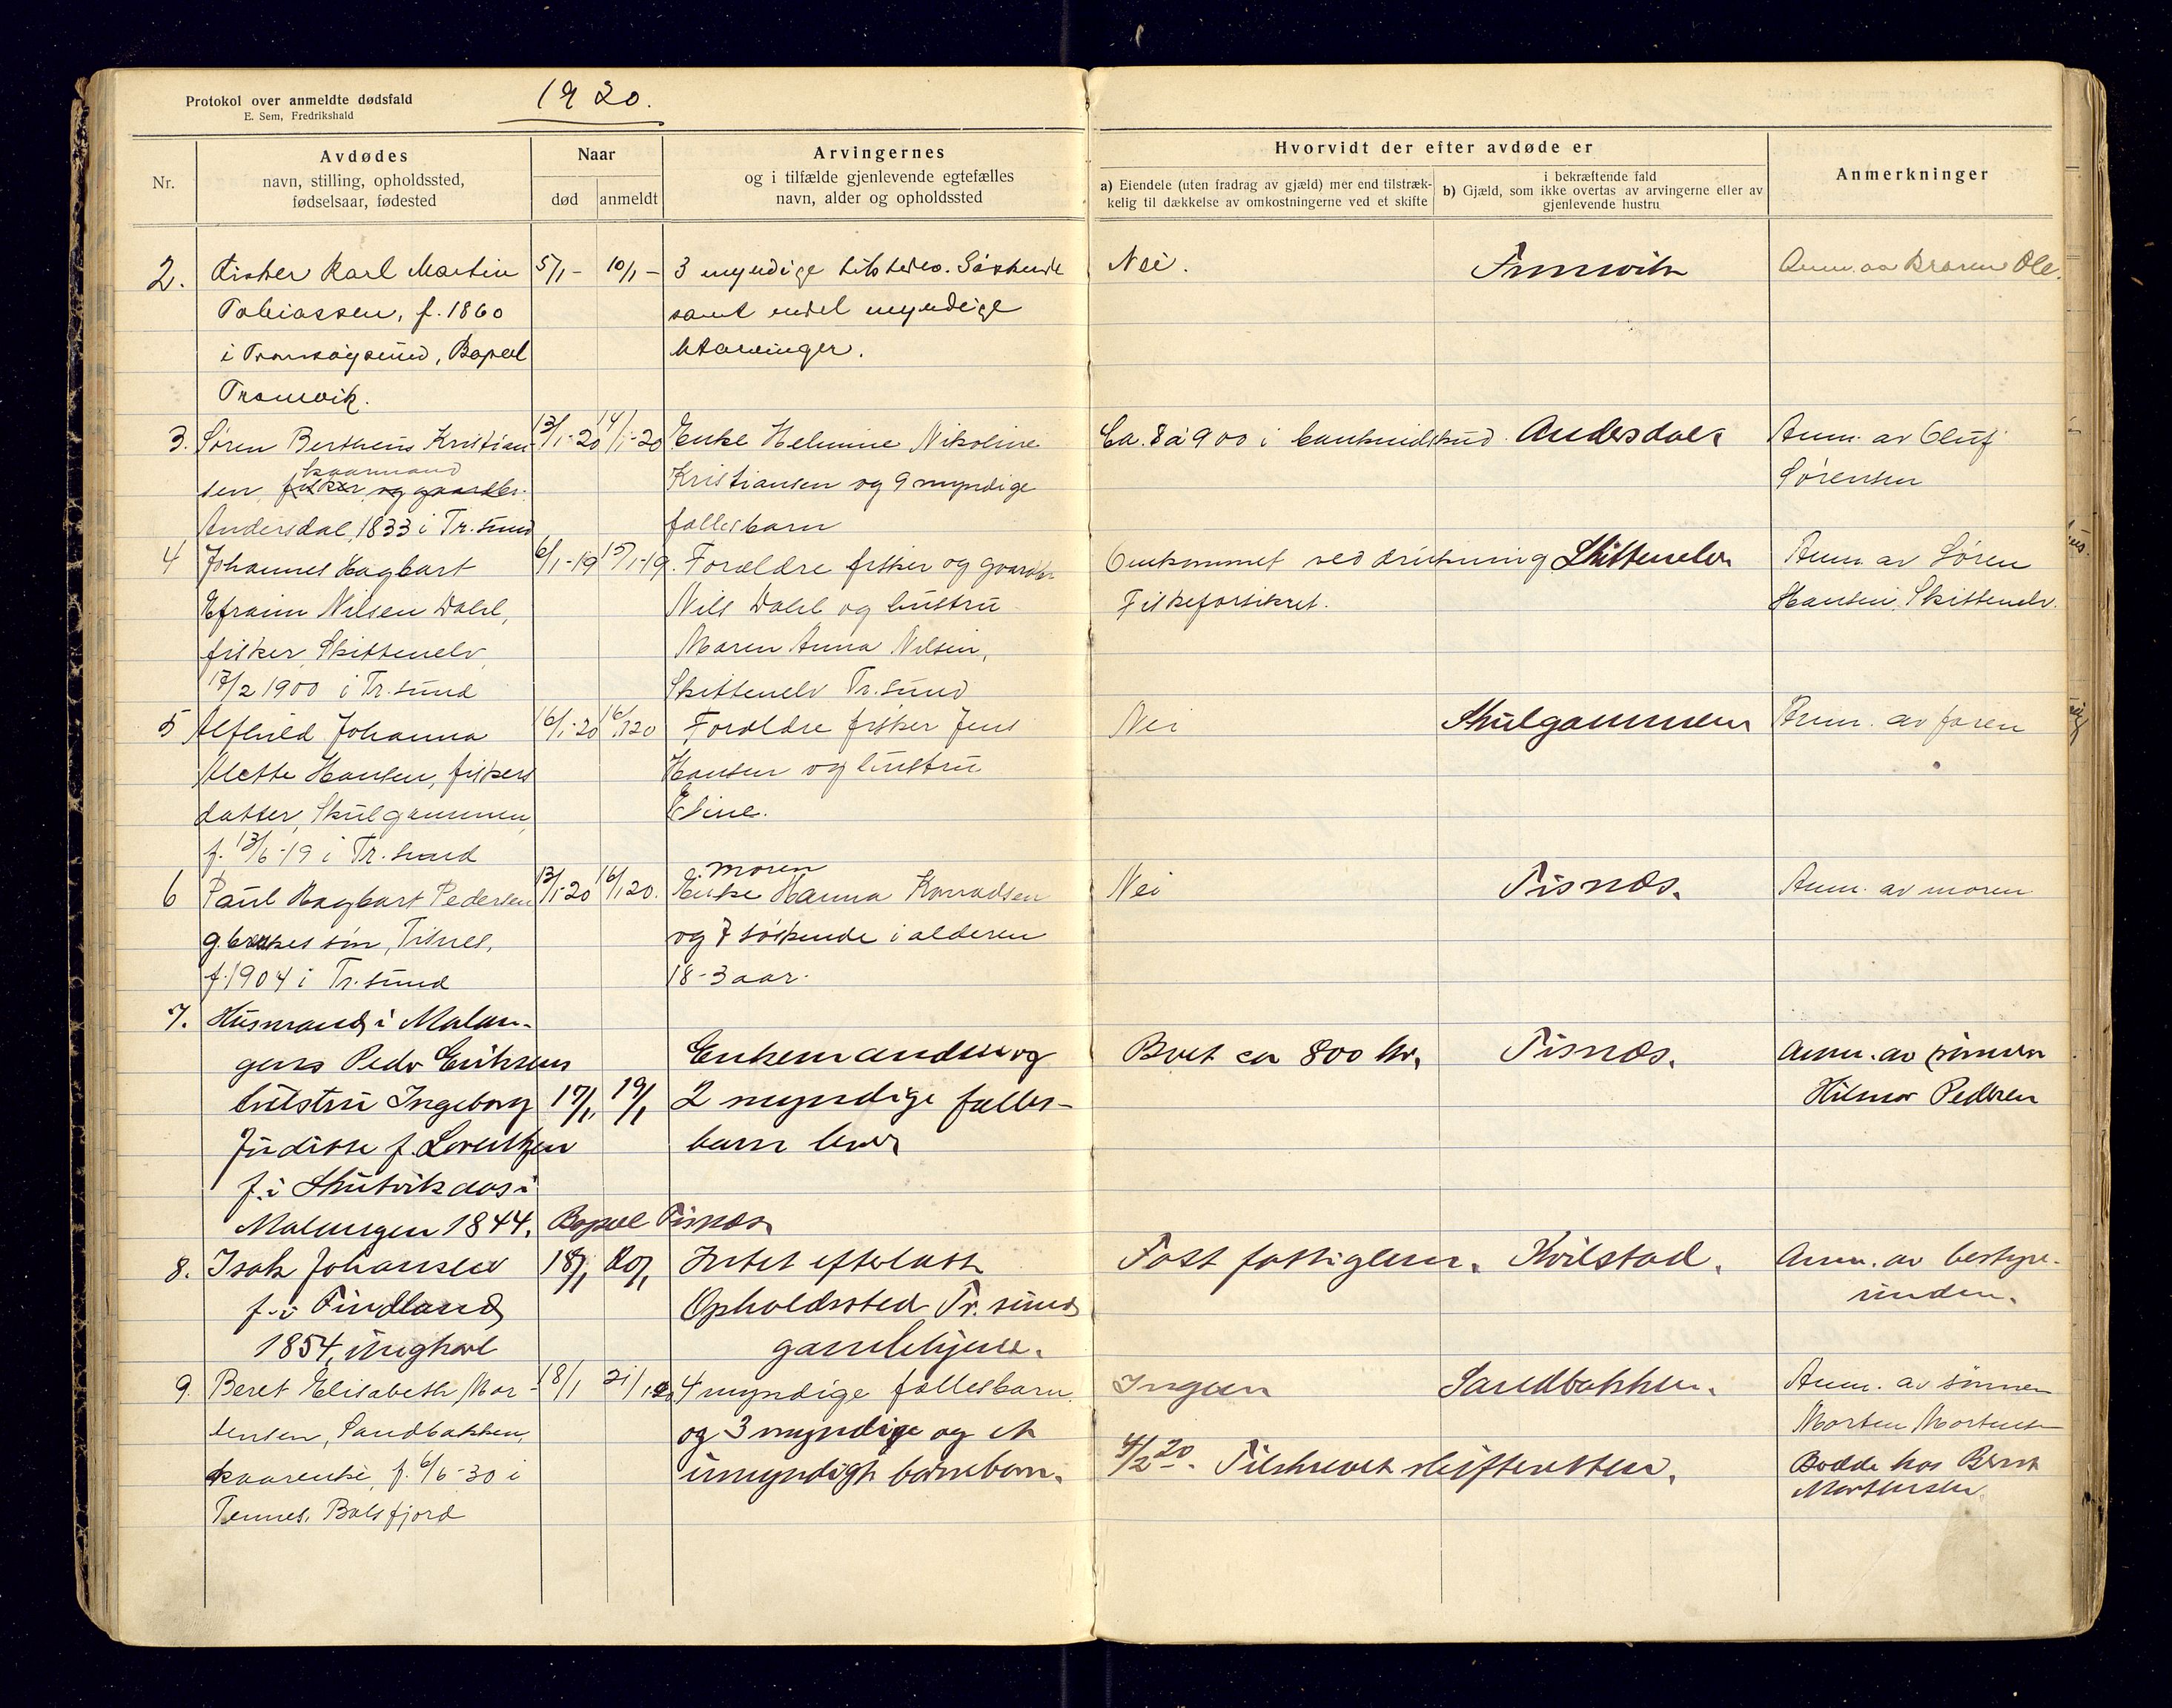 Protokol over anmeldte dødsfald
E. Sem, Fredrikshald
1920.
Nr.
Avdødes
navn, stilling, opholdssted,
fødselsaar, fødested
Naar
død
anmeldt
Arvingernes
og i tilfælde gjenlevende egtefælles
navn, alder og opholdssted
Hvorvidt der efter avdøde er
a) Eiendele (uten fradrag av gjæld) mer end tilstræk-
kelig til dækkelse av omkostningerne ved et skifte
i bekræftende fald
b) Gjæld, som ikke overtas av arvingerne eller av
gjenlevende hustru
Anmerkninger
2. Fisker Karl Martin 5/1- 10/1- 3 myndige Søskende Nei. Anm. av Broren Ole.
Tobiassen, f. 1860 samt endel myndige
i Tromsøysund, Bopæl
Tromvik.
3. Søren Bertheus Kristian- 13/1-20 14/1-20 Enke Helmine Nikoline Ca. 8 à 900 i Andersdal Anm. av Oluf
kaarmand
sen, fisker og gaardbr. Kristiansen og 9 myndige Sørensen
Andersdal, 1833 i Tr.sund fællesbarn
4 Johannes Hagbart 6/1-19 15/1-19. Forældre fisker og gaardbr Omkommet ved drukning Skittenelv Anm. av Søren
Efraim Nilsen Dahl, Nils Dahl og hustru Fiskeforsikret. Hansen, Skittenelv.
fisker, Skittenelv, Maren Anna Nilsen,
17/2 1900 i Tr.sund Skittenelv Tr.sund
5 Alfhild Johanna 16/1-20 16/1 20 Forældre fisker Jens Nei Skulgammen Anm. av faren
Alette Hansen, fiskers Hansen og hustru
datter, Skulgammen, Eline.
f. 13/6-19 i Tr.sund
moren
6 Paul Hagbart Pedersen 13/1-20 16/1 20. Enke Hanna Konradsen Nei Tisnæs. Anm. av moren
g.brukes søn, Tisnes, og 7 søskende i alderen
f. 1904 i Tr.sund 18-3 aar.
7. Husmand i Malan-
gens Peder Eriksens Enkemanden og Boet ca 800 kr. Tisnæs. Anm. av sønnen
hustru Ingeborg 17/1 19/1 2 myndige fælles- Hilmar Pedersen
Juditte f. Lorentzen barn lever
f. i
Malangen 1844. Bopæl Tisnæs
8. Isak Johansen 18/1 20/1 Intet efterlatt Fast fattiglem. Kvilstad. Anm. av bestyre-
f. i Findland Opholdssted Tr.sund rinden.
1854, ungkarl gamlehjem.
9. Beret Elisabeth Mor- 18/1 21/1 20 4 myndige fællesbarn Ingen Sandbakken. Anm. av sønnen
tensen, Sandbakken, og 3 myndige og et Morten Mortensen
kaarenke, f. 6/6-30 i umyndigt barnebarn. 4/2 20. Tilskrevet skifteretten. Bodde hos Bernt
Tennes, Balsfjord Mortensen